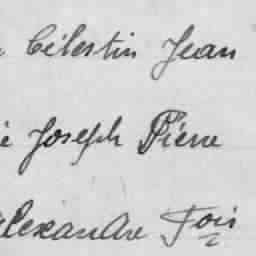 Célestin Jean
Joseph Pierre
Alexandre Fois